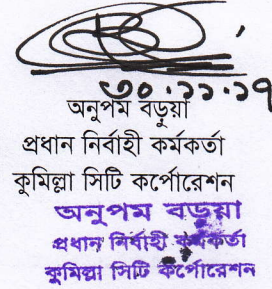 ৩০.১১.১৭
অনুপম বড়ুয়া
প্রধান নির্বাহী কর্মকর্তা
কুমিল্লা সিটি কর্পোরেশন
অনুপম বড়ুয়া
প্রধান নির্বাহী কর্মকর্তা
কুমিল্লা সিটি কর্পোরেশন